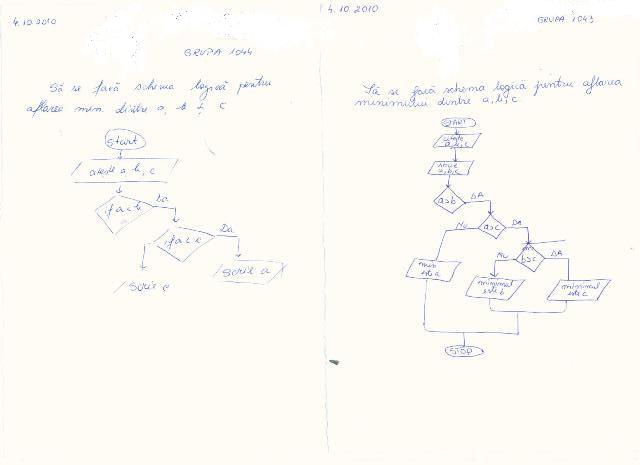 4.10.2010
GRUPA 1044
Să se facă schema logică pentru
aflarea min. dintre a, b și c
Start
citește a, b, c
if a<b
Da
if a<c
Da
Scrie a
Scrie c
4.10.2010
GRUPA 1043
Să se facă schema logică pentru aflarea
minimului dintre a, b, c.
START
citește
a, b, c
scrie
a, b, c
a>b
DA
Nu
a>c
Da
Nu
b>c
DA
min
este a
minimul
este b
minimul
este c
STOP